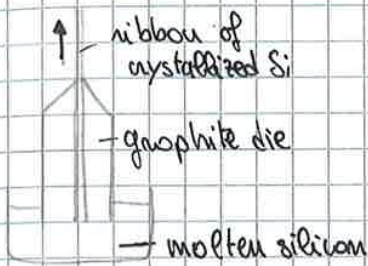 ribbon of
crystallized Si
graphite die
molten silicon